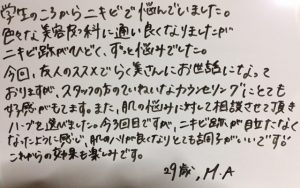 学生のころからニキビで悩んでいました。
色々な美容皮フ科に通い良くなりましたが
ニキビ跡がひどく、ずっと悩みでした。
今回、友人のススメでらく美さんにお世話になって
おりますが、スタッフの方のていねいなカウンセリングにとても
好感がもてます。また、肌の悩みに対して相談させて頂き
ハーブを選べました。今3回目ですが、ニキビ跡が目立たなく
なったように感じ、肌のハリが良くなりとても調子がいいです。
これからの効果も楽しみです。
29歳、M.A